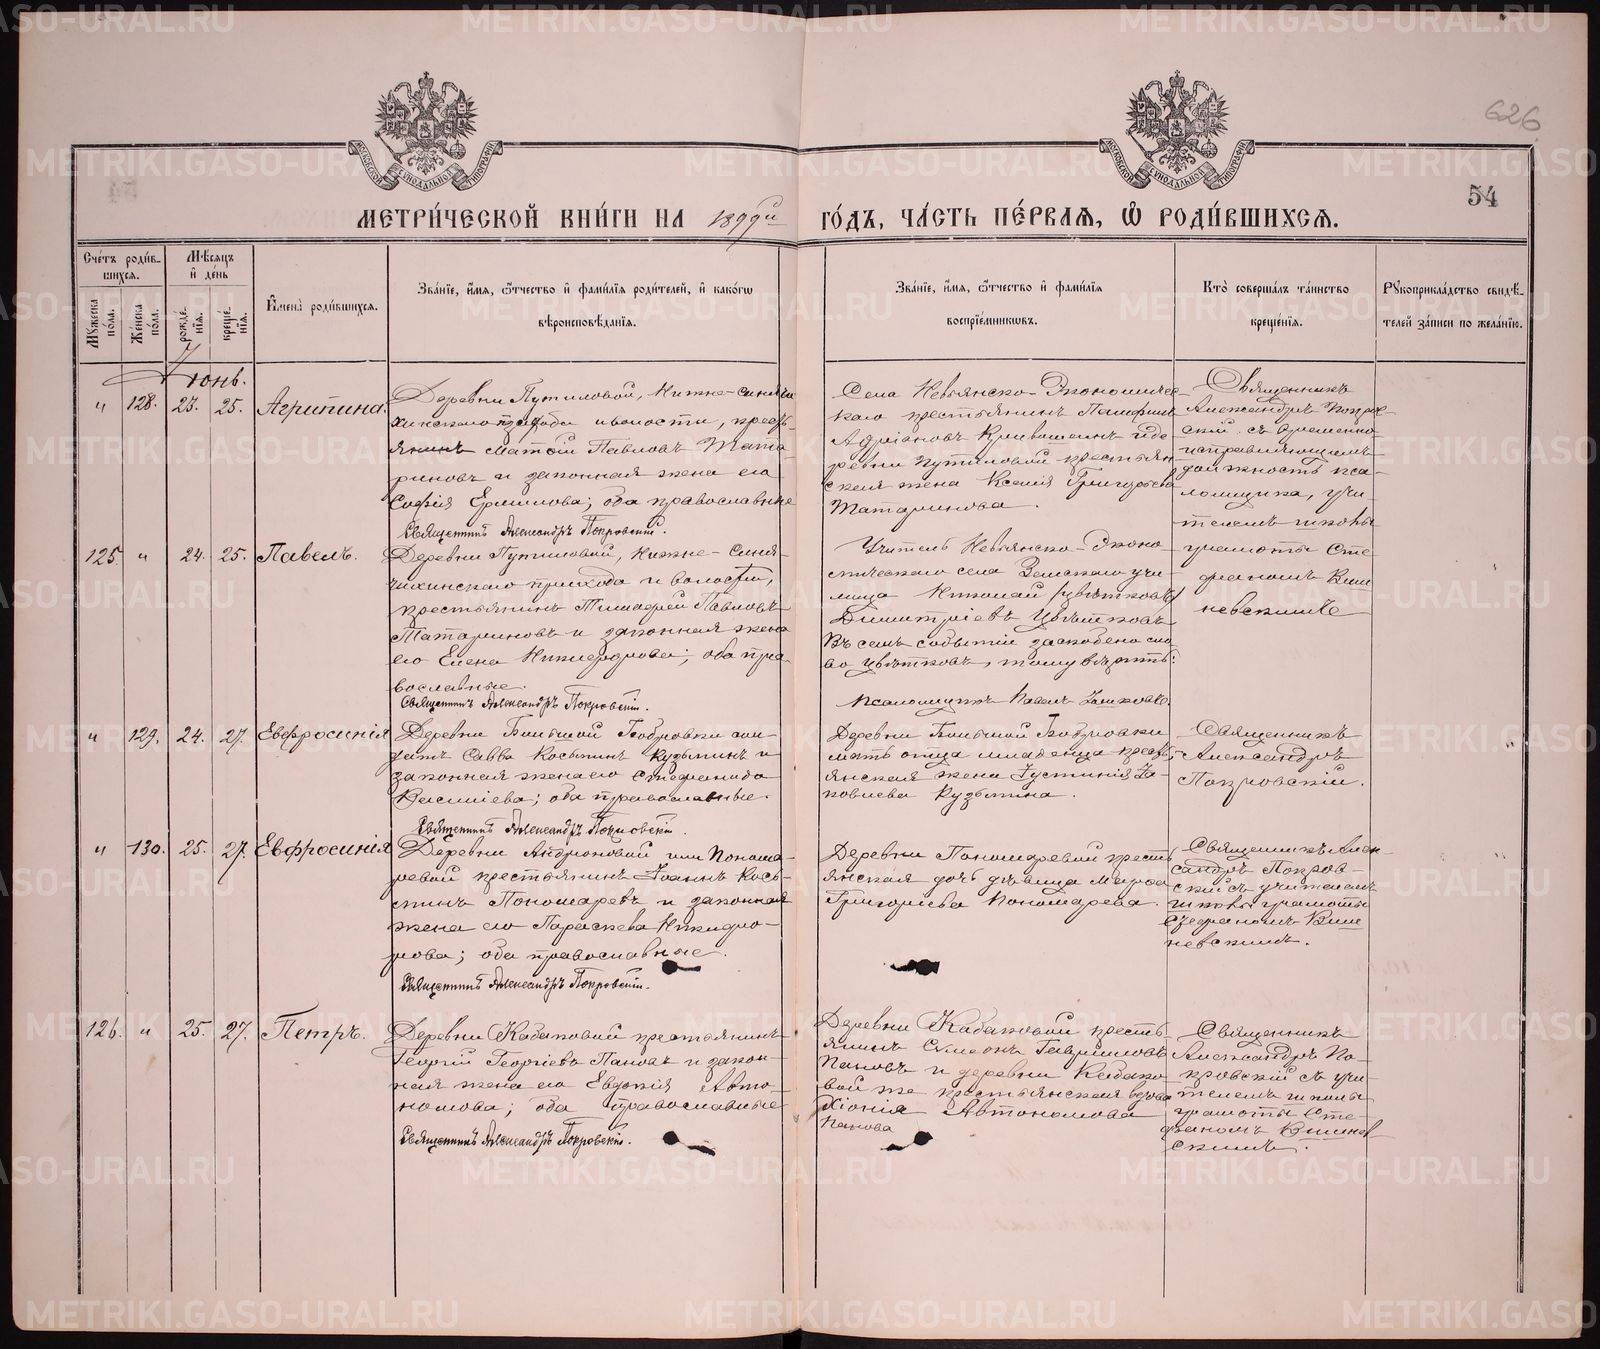 626
54
МЕТРИ́ЧЕСКОЙ КНИ́ГИ НА 1899й ГО́ДЪ, ЧА́СТЬ ПЕ́РВАѦ, Ѿ РОДИ́ВШИХСѦ.
Сче́тъ роди́в-
шихся.
Мꙋ́жеска пола.
Же́нска по́ла.
Мѣ́сяцъ
и҆ де́нь
рожде́-
нїя.
креще́-
нїя.
И҆мена̀ роди́вшихся.
Зва́нїе, и҆́мя, ѻ҆́тчество и҆ фами́лїя роди́телей, и҆ како́гѡ
вѣроисповѣ́данїя.
Зва́нїе, и҆́мя, ѻ҆́тчество и҆ фами́лїя
воспрїе́мниковъ.
Кто̀ соверша́лъ та́инство
креще́нїя.
Рꙋкоприкла́дство свидѣ́-
телей за́писи по жела́нїю.
Іюнь.
" 128. 23. 25. Агрипина.
Деревни Путиловой, Нижне-Синячи
хинскаго прихода и волости, кресть
янинъ Матѳій Павловъ Тата
риновъ и законная жена его
Софія Ермилова; оба православные
Священникъ Александръ Покровскій.
Села Невьянско-Экономичес
каго крестьянинъ
Адріановъ Кривошеинъ и де
ревни Путиловой крестьян
ская жена Ксенія Григорьева
Татаринова.
Священникъ
Александръ Покров
скій съ временно-
исправляющимъ
должность пса-
ломщика, учи-
телемъ школы
грамоты Сте
фаномъ Виш
невскимъ
125. " 24. 25. Павелъ.
Деревни Путиловой, Нижне-Синя-
чихинскаго прихода и волости,
крестьянинъ Тимофей Павловъ
Татариновъ и законная жена
его Елена Никифорова; оба пра-
вославные.
Священникъ Александръ Покровскій.
Учитель Невьянско-Эконо
мическаго села Земскаго учи
лища Николай (цвѣтковъ)
Димитріевъ Цвѣтковъ
Въ семъ событіи заскоблено сло
во цвѣтковъ, тому вѣрить:
Псаломщикъ Павелъ
" 129. 24. 27. Евфросинія
Деревни Большой Бобровки сол-
датъ Савва Косьминъ Кузьминъ и
законная жена его Стефанида
Василіева; оба православные.
Священникъ Александръ Покровскій.
Деревни Большой Бобровки
мать отца младенца кресть
янская жена Іустинія Іа-
ковлева Кузьмина.
Священникъ
Александръ
Покровскій.
" 130. 25. 27. Евфросинія
Деревни Андроновой или Понома-
ревой крестьянинъ Іоаннъ Кось-
минъ Пономаревъ и законная
жена его Параскева Никифо-
рова; оба православные.
Священникъ Александръ Покровскій.
Деревни Пономаревой кресть
янская дочь дѣвица Марѳа
Григоріева Пономарева.
Священникъ Алек-
сандръ Покров-
скій съ учителемъ
школы грамоты
Стефаномъ Виш
невскимъ.
126. " 25. 27. Петръ.
Деревни Кабаковой крестьянинъ
Георгій Георгіевъ Пановъ и закон-
ная жена его Евдокія Авто-
номова; оба православные
Священникъ Александръ Покровскій.
Деревни Кабаковой кресть
янинъ Симеонъ Гавриловъ
Пановъ и деревни Кабако
вой же крестьянская вдова
Хіонія Автономова
Панова
Священникъ
Александръ По-
кровскій съ учи-
телемъ школы
грамоты Сте-
фаномъ Вишнев
скимъ.